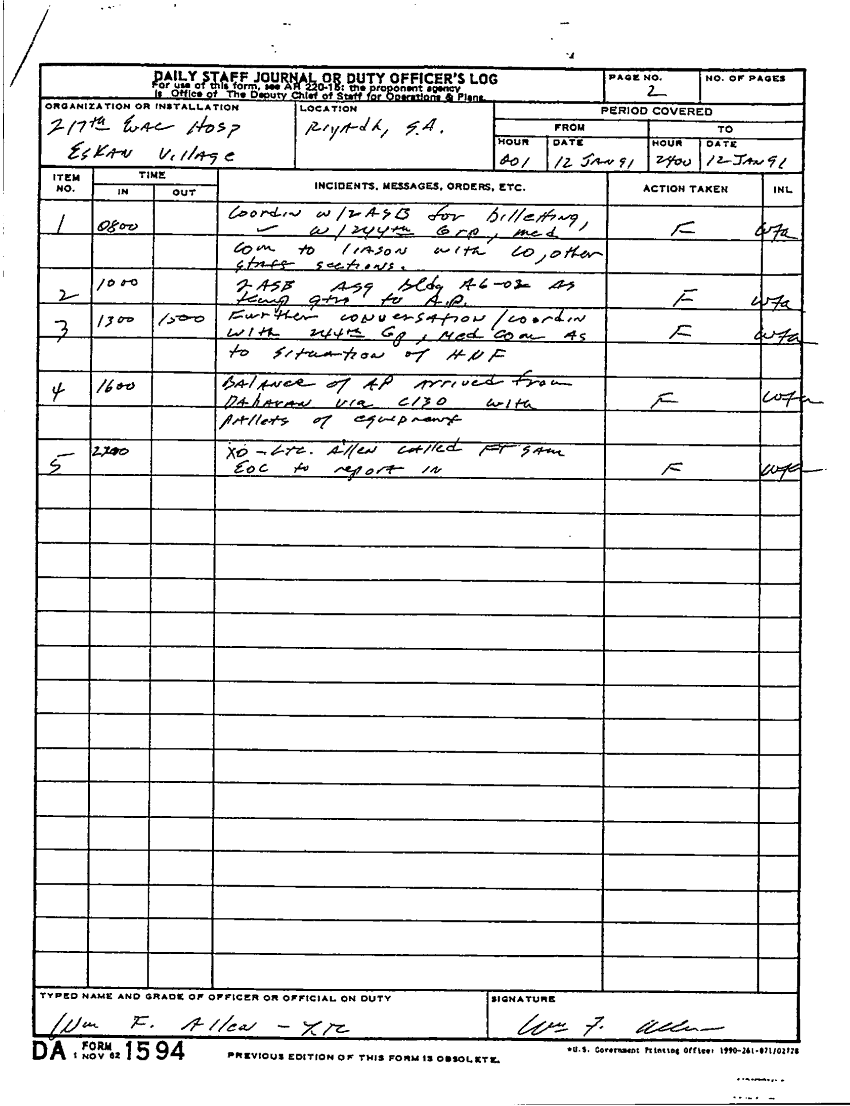 DAILY STAFF JOURNAL OR DUTY OFFICER'S LOG
For use of this form, see AR 220-15; the proponent agency
is Office of The Deputy Chief of Staff for Operations & Plans.
PAGE NO.
2
NO. OF PAGES
ORGANIZATION OR INSTALLATION
217th Evac Hosp
Eskan Village
LOCATION
Riyadh, S.A.
PERIOD COVERED
FROM
TO
HOUR
DATE
HOUR
DATE
001
12 JAN 91
2400
12 JAN 91
ITEM NO.
TIME
IN
OUT
INCIDENTS, MESSAGES, ORDERS, ETC.
ACTION TAKEN
INL
1 0800 Coordin w/2ASB for billeting,
w/244th Grp, med F wfa
Com to liason with CO, other
staff sections.
2 1000 2 ASB Asg bldg A6-02 as
temp qtrs to A.P. F wfa
3 1300 1500 Further conversation/coordin
with 244th Gp, Med Com as F wfa
to situation of HNF
4 1600 Balance of AP arrived from
Daharan via C130 with F wfa
pallets of equipment
5 2200 XO - LTC. Allen called FT SAM
EOC to report in F wfa
TYPED NAME AND GRADE OF OFFICER OR OFFICIAL ON DUTY
Wm F. Allen - LTC
SIGNATURE
Wm F. Allen
DA FORM 1 NOV 62 1594
PREVIOUS EDITION OF THIS FORM IS OBSOLETE.
*U.S. Government Printing Office: 1990-261-871/02728